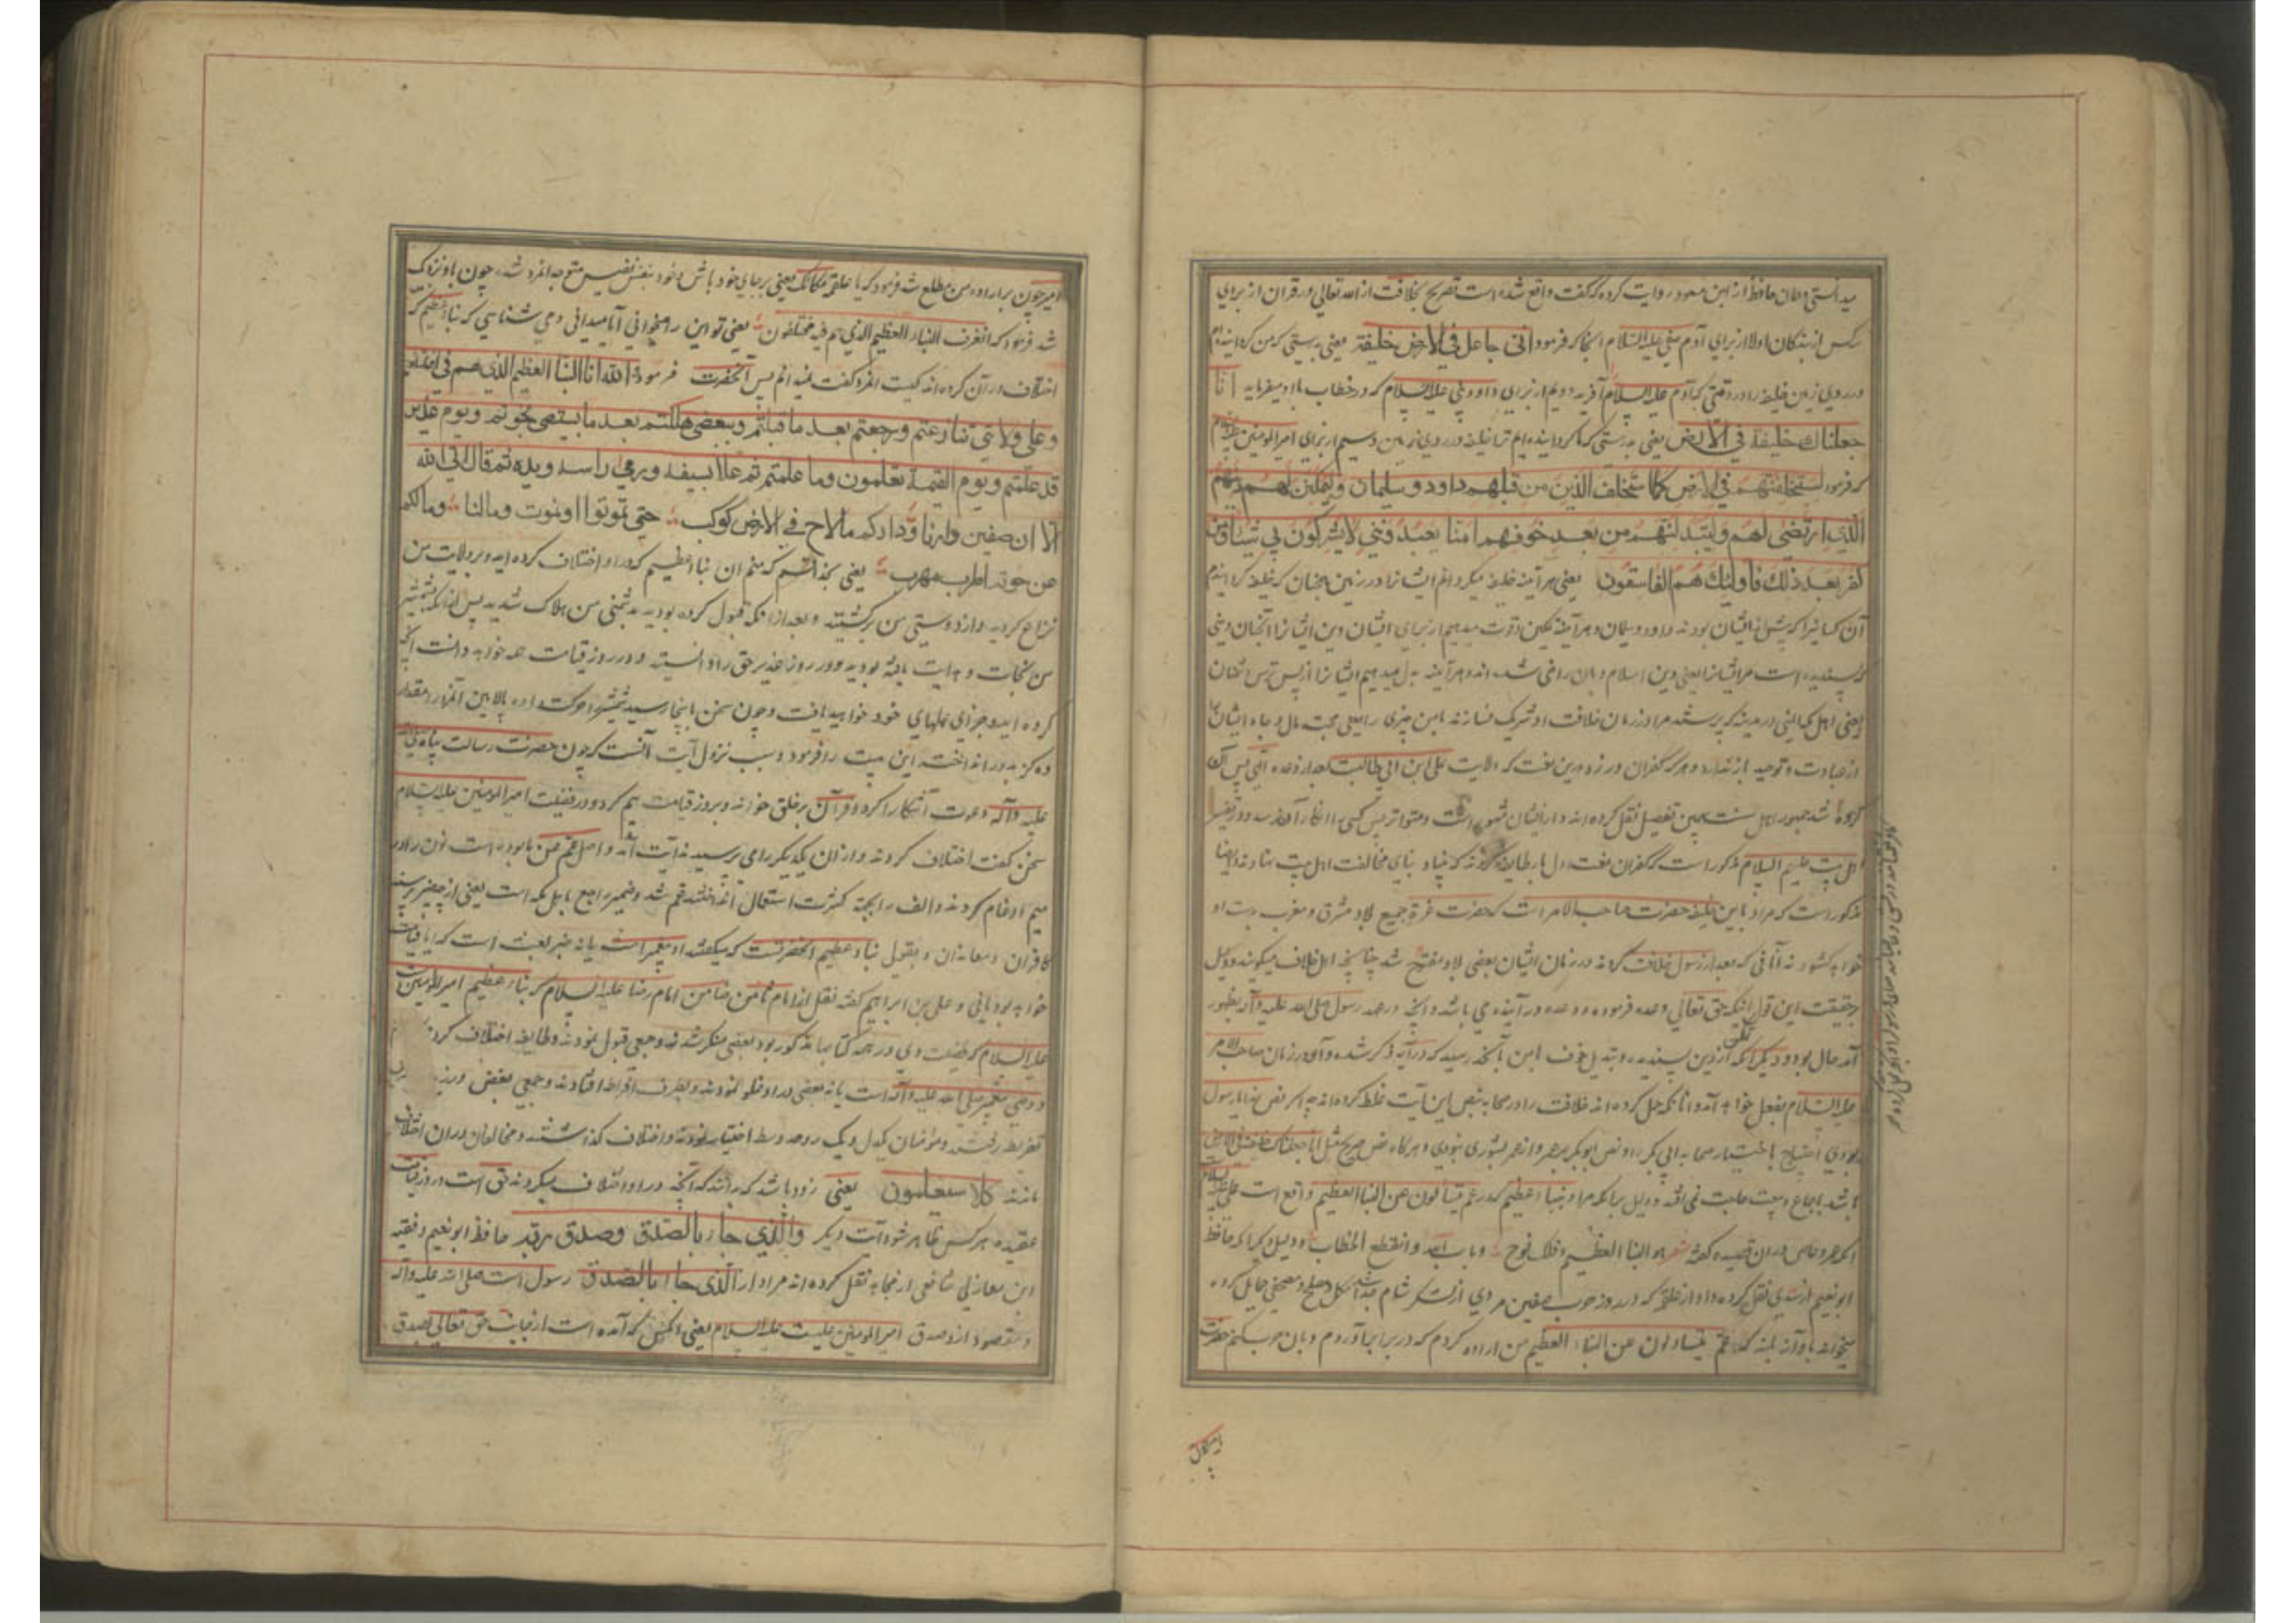 میدانستی و ایمان حافظ از ابن مسعود روایت کرده که گفت واقع شده است تصریح بخلافت از الله تعالی در قرآن از برای
کس از بندگان اولا از برای آدم صفی علیه السلام آنجا که فرمود انی جاعل فی الارض خلیفة یعنی بدرستی که من گرداننده ام
در روی زمین خلیفه را در وقتی که آدم علیه السلام آفرید دویم از برای داود نبی علیه السلام که در خطاب با او میفرماید انا
جعلناك خليفة في الارض یعنی بدرستی که ما گردانیده ایم ترا خلیفه در روی زمین و سیم از برای امیر المومنین علیه السلام
که فرمود لیستخلفنهم فی الارض کما استخلف الذین من قبلهم داود و سلیمان ولیمکنن لهم دینهم
الذی ارتضی لهم ولیبدلنهم من بعد خوفهم امنا یعبدوننی لا یشرکون بی شیئا ومن
کفر بعد ذلك فاولئك هم الفاسقون یعنی هر آینه خلیفه میگردانم ایشانرا در زمین همچنان که خلیفه گردانیدم
آن کسانیرا که پیش از ایشان بودند داود و سلیمان و هر آینه تمکین و قوت میدهم از برای ایشان دین ایشانرا آنچنان دینی
که پسندیده است مر ایشانرا یعنی دین اسلام و بان راضی شده اند و هر آینه بدل میدهیم ایشانرا از پس ترس ایشان
از عبادت و توحید باز ندارد و هر که کفران ورزد بدین نعمت که ولایت علی ابن ابی طالبست بعد از وعده الهی پس آن
گروه شد جمهور اهل سنت همین تفصیل نقل کرده اند
اهل بیت علیهم السلام مذکور است که کفران نعمت اول بار طایفه کردند که بنیاد بنای مخالفت اهل بیت نهادند و اینها
مذکور است که مراد باین خلیفه حضرت صاحب الامر است که حضرت عزة جمیع بلاد مشرق و مغرب بدست او
خواهد کشود نه آنانی که بعد از رسول خلافت کردند در زمان ایشان بعضی بلاد مفتوح شد چنانچه اهل خلاف میگویند و دلیل
حقیقت این قول آنکه حق تعالی وعده فرموده و وعده در آینده می باشد و آنچه در عهد رسول صلی الله علیه وآله بظهور
آمد حال بود و دیگر آنکه تمکین از دین پسندیده و تبدیل خوف امن بآنچه رسید که در آیه ذکر شده و آن در زمان صاحب الامر
علیه السلام بفعل خواهد آمد و آنانکه حمل کرده اند خلافت را در صحابه بنص این آیت غلط کرده اند چه اگر نص خدا و رسول
بودی احتیاج باختیار صحابه ابی بکر را و نص ابوبکر بر عمر و از عمر بشوری نبودی و هرگاه نص صریح مثل انا جعلناك خليفة في الارض
باشد باجماع و بیعت حاجت نمی افتد و دلیل برانکه مراد بنبا اعظیم که در عم یتسالون عن النبا العظیم واقع است علی علیه السلام
آنکه عمرو عاص در ان قصیده گفته شعر هو النبا العظیم وفلك نوح وباب الله وانقطع الخطاب و دلیل دیگر آنکه حافظ
ابو نعیم از سدی نقل کرده و او از علقمه که در روز حرب صفین مردی از لشکر شام مکمل و مسلح و مصحفی حمایل کرده
میخواند باواز بلند که عم یتساءلون عن النباء العظیم من اراده کردم که در برابر او روم و بان حرب کنم حضرت
امیر چون
امیر چون بر اراده من مطلع شد فرمود که یا علقمه مکانک یعنی بر جای خود باش و خود بنفس نفیس متوجه انمرد شد چون باو نزدیک
شد فرمود که اتعرف النباء العظیم الذی هم فیه مختلفون یعنی تو این را میخوانی آیا میدانی و می شناسی که نبا اعظیم که
اختلاف در آن کرده اند کیست انمرد گفت نمیدانم پس آنحضرت فرمود والله انا النبا العظیم الذی هم فی اختلفتم
وعلی ولایتی تنازعتم ورجعتم بعد ما قبلتم وببغضی هلکتم بعد ما بسیفی نجوتم ویوم غدیر
قد علمتم ویوم القیمة تعلمون وما علمتم ثم علا بسیفه ورمی راسه ویده ثم قال الی الله
الا ان صفین دارنا ودارکم ما لاح فی الارض کوکب حتی تموتوا او نموت ومالنا ومالکم
عن حومة الحرب مهرب یعنی بخدا قسم که منم ان نبا اعظیم که در او اختلاف کرده اید و بر ولایت من
نزاع کردید و از دوستی من برگشتید و بعد از انکه قبول کرده بودید بدشمنی من هلاک شدید پس از انکه بشمشیر
من نجات و هدایت یافته بودید و در روز غدیر حق را دانستید و در روز قیامت همه خواهید دانست آنچه
کرده اید و جزای عملهای خود خواهید یافت و چون سخن باینجا رسید شمشیر حرکت داده بالای انمرد را مقدار
ده گز بدور انداخته این بیت را فرمود و سبب نزول آیت آنست که چون حضرت رسالت پناه صلی الله
علیه وآله دعوت آشکارا کرد و قرآن بر خلق خواند و بروز قیامت بیم کرد و در فضیلت امیر المومنین علیه السلام
سخن گفت اختلاف کردند و از آن یکدیگر را می پرسیدند آیت آمد و اصل عم عن ما بوده است نون را در
میم ادغام کردند و الف را بجهة کثرت استعمال انداختند عم شد و ضمیر راجع باهل مکه است یعنی از چه چیز میپرسند
کافران و معاندان و بقولی نباء عظیم آنحضرتست که میگفتند او پیغمبر است یا نه خبر بعث است که آیا قیامت
خواهد بود یا نی و علی بن ابراهیم گفته نقل از امام ثامن ضامن امام رضا علیه السلام که نباء عظیم امیر المومنین
علیه السلام که فضیلت وی در همه کتابها مذکور بود بعضی منکر شدند و جمعی قبول نمودند و طایفه اختلاف کردند
و وصی پیغمبر صلی الله علیه وآله است یا نه بعضی در او غلو نمودند و بطرف افراط افتادند و جمعی بغض
تفریط رفتند و مؤمنان یکدل و یک رو حد وسط اختیار نمودند و اختلاف گذاشتند و مخالفان در ان اختلاف
ماندند کلا سیعلمون یعنی زود باشد که بدانند که آنچه در او اختلاف میکردند حق است و در روز قیامت
عقیده هر کس ظاهر شود آیت دیگر والذی جاء بالصدق وصدق به حافظ ابو نعیم و فقیه
ابن مغازلی شافعی از مجاهد نقل کرده اند مراد از الذی جاء بالصدق رسول است صلی الله علیه وآله
و مقصود از وصدق امیر المومنین علیست علیه السلام یعنی آنکس که آمده است از جانب حق تعالی بصدق